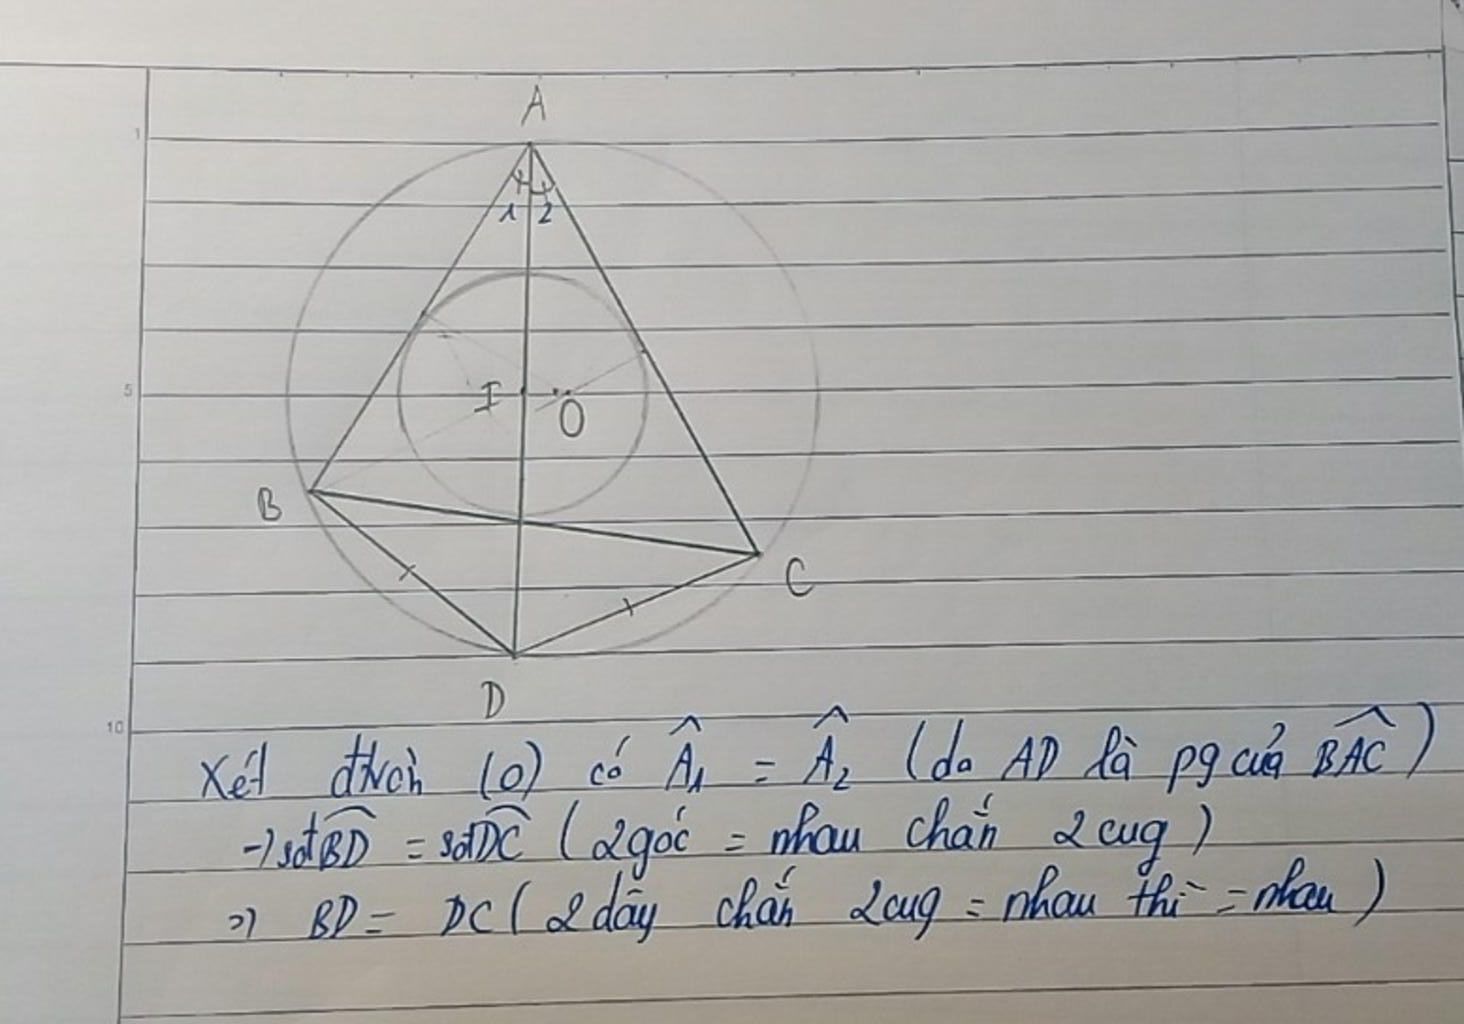 A
1
1 2
5
I
O
B
C
D
10
Xét đtròn (O) có Â₁ = Â₂ (do AD là pg của B̂AC)
→ sđ B͡D = sđ D͡C (2 góc = nhau chắn 2 cug)
=> BD = DC (2 dây chắn 2 cug = nhau thì = nhau)